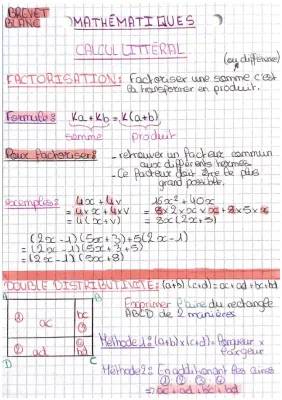 BREVET
BLANC
MATHÉMATIQUES
CALCUL LITTÉRAL
(ou différence)
FACTORISATION: Factoriser une somme c'est
la transformer en produit.
Formule: Ka+Kb = K(a+b)
somme produit
Pour factoriser: - retrouver un facteur commun
aux différents termes.
- Ce facteur doit être le plus
grand possible.
exemples: 4x + 4v
= 4 x x + 4 x v
= 4(x+v)
16x² + 40x
= 8x2xxxx + 8x5xx
= 8x(2x+5)
(2x-1)(5x+3)+5(2x-1)
=(2x-1)(5x+3+5)
=(2x-1)(5x+8)
DOUBLE DISTRIBUTIVITÉ: (a+b)(c+d)= ac+ad+bc+bd
A B
① ac bc ③
② ad bd ④
D C
Exprimer l'aire du rectangle
ABCD de 2 manières
Méthode 1: (a+b)x(c+d)= Longueur x
Largeur
Méthode 2: En additionnant les aires
① ② ③ ④
=> ac+ad+bc+bd